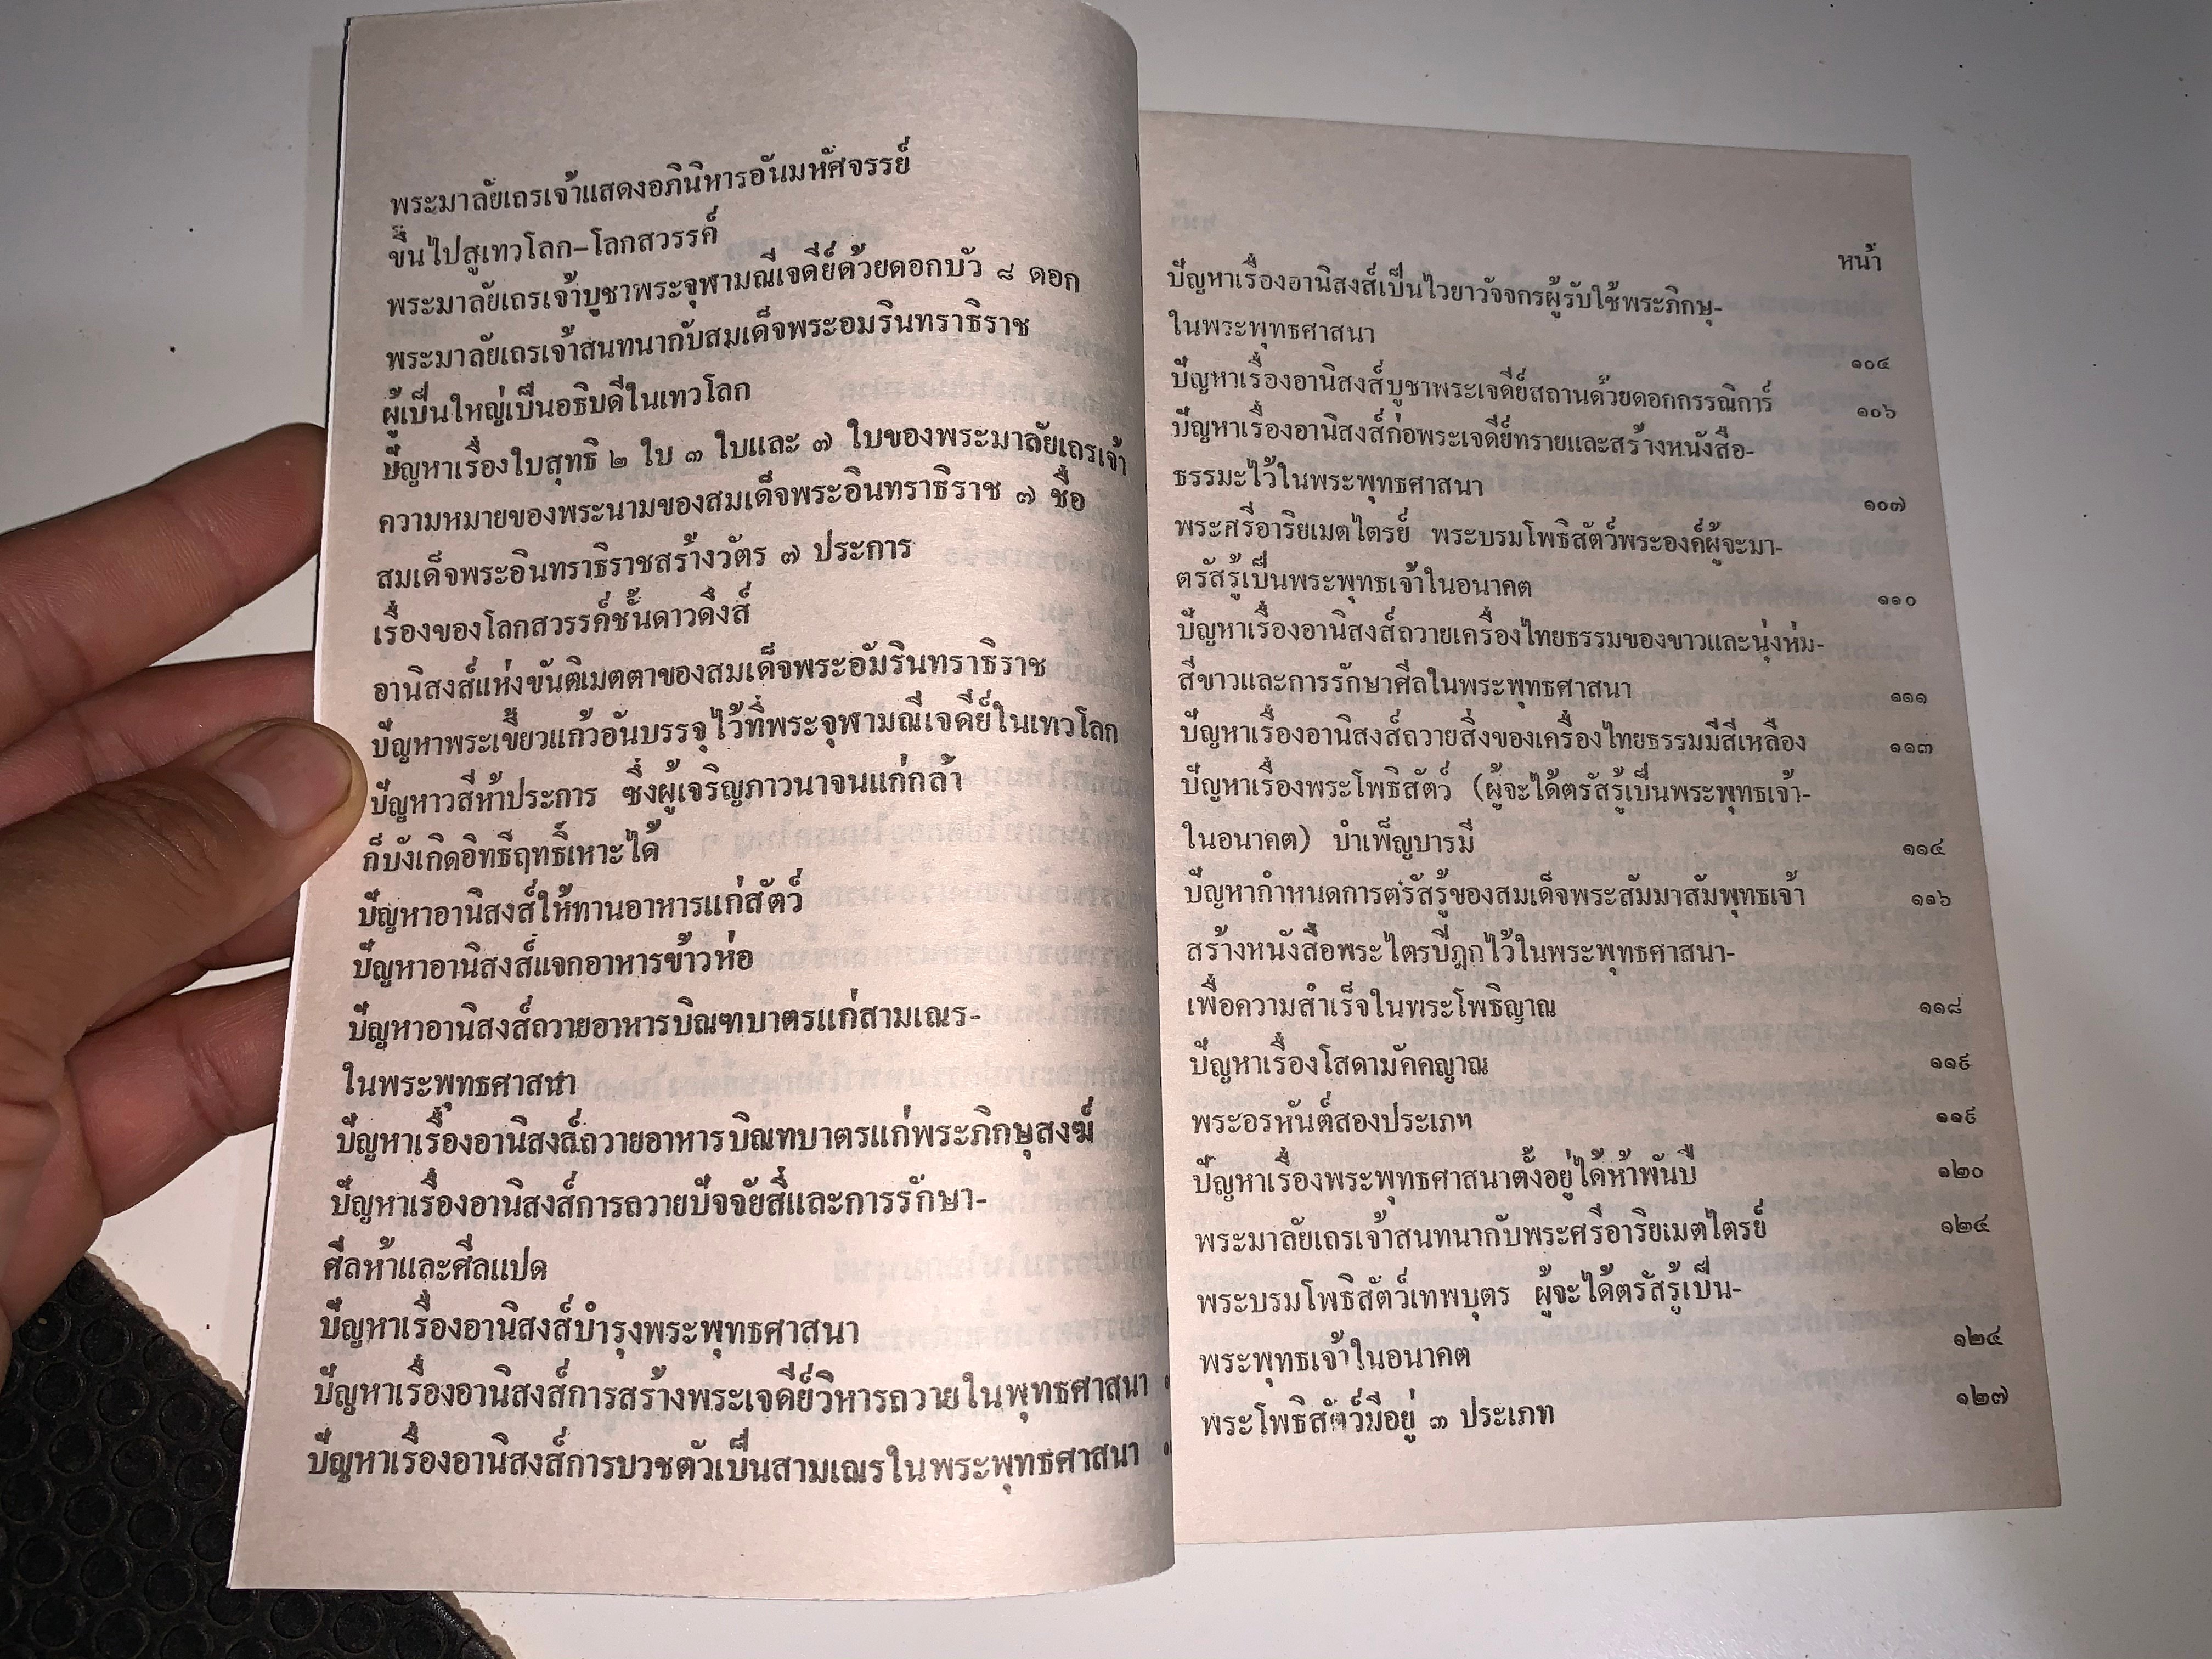 พระมาลัยเถรเจ้าแสดงอภินิหารอันมหัศจรรย์
ขึ้นไปสู่เทวโลก-โลกสวรรค์
พระมาลัยเถรเจ้าบูชาพระจุฬามณีเจดีย์ด้วยดอกบัว ๘ ดอก
พระมาลัยเถรเจ้าสนทนากับสมเด็จพระอมรินทราธิราช
ผู้เป็นใหญ่เป็นอธิบดีในเทวโลก
ปัญหาเรื่องใบสุทธิ ๒ ใบ ๓ ใบและ ๗ ใบของพระมาลัยเถรเจ้า
ความหมายของพระนามของสมเด็จพระอินทราธิราช ๗ ชื่อ
สมเด็จพระอินทราธิราชสร้างวัตร ๗ ประการ
เรื่องของโลกสวรรค์ชั้นดาวดึงส์
อานิสงส์แห่งขันติเมตตาของสมเด็จพระอัมรินทราธิราช
ปัญหาพระเขี้ยวแก้วอันบรรจุไว้ที่พระจุฬามณีเจดีย์ในเทวโลก
ปัญหาวสีห้าประการ ซึ่งผู้เจริญภาวนาจนแก่กล้า
ก็บังเกิดอิทธิฤทธิ์เหาะได้
ปัญหาอานิสงส์ให้ทานอาหารแก่สัตว์
ปัญหาอานิสงส์แจกอาหารข้าวห่อ
ปัญหาอานิสงส์ถวายอาหารบิณฑบาตรแก่สามเณร-
ในพระพุทธศาสนา
ปัญหาเรื่องอานิสงส์ถวายอาหารบิณฑบาตรแก่พระภิกษุสงฆ์
ปัญหาเรื่องอานิสงส์การถวายปัจจัยสี่และการรักษา-
ศีลห้าและศีลแปด
ปัญหาเรื่องอานิสงส์บำรุงพระพุทธศาสนา
ปัญหาเรื่องอานิสงส์การสร้างพระเจดีย์วิหารถวายในพุทธศาสนา
ปัญหาเรื่องอานิสงส์การบวชตัวเป็นสามเณรในพระพุทธศาสนา
หน้า
ปัญหาเรื่องอานิสงส์เป็นไวยาวัจจกรผู้รับใช้พระภิกษุ-
ในพระพุทธศาสนา ๑๐๔
ปัญหาเรื่องอานิสงส์บูชาพระเจดีย์สถานด้วยดอกกรรณิการ์ ๑๐๖
ปัญหาเรื่องอานิสงส์ก่อพระเจดีย์ทรายและสร้างหนังสือ-
ธรรมะไว้ในพระพุทธศาสนา ๑๐๗
พระศรีอาริยเมตไตรย์ พระบรมโพธิสัตว์พระองค์ผู้จะมา-
ตรัสรู้เป็นพระพุทธเจ้าในอนาคต ๑๑๐
ปัญหาเรื่องอานิสงส์ถวายเครื่องไทยธรรมของขาวและนุ่งห่ม-
สีขาวและการรักษาศีลในพระพุทธศาสนา ๑๑๑
ปัญหาเรื่องอานิสงส์ถวายสิ่งของเครื่องไทยธรรมมีสีเหลือง ๑๑๓
ปัญหาเรื่องพระโพธิสัตว์ (ผู้จะได้ตรัสรู้เป็นพระพุทธเจ้า-
ในอนาคต) บำเพ็ญบารมี ๑๑๔
ปัญหากำหนดการตรัสรู้ของสมเด็จพระสัมมาสัมพุทธเจ้า ๑๑๖
สร้างหนังสือพระไตรปิฎกไว้ในพระพุทธศาสนา-
เพื่อความสำเร็จในพระโพธิญาณ ๑๑๘
ปัญหาเรื่องโสดามัคคญาณ ๑๑๙
พระอรหันต์สองประเภท ๑๑๙
ปัญหาเรื่องพระพุทธศาสนาตั้งอยู่ได้ห้าพันปี ๑๒๐
พระมาลัยเถรเจ้าสนทนากับพระศรีอาริยเมตไตรย์ ๑๒๔
พระบรมโพธิสัตว์เทพบุตร ผู้จะได้ตรัสรู้เป็น-
พระพุทธเจ้าในอนาคต ๑๒๔
พระโพธิสัตว์มีอยู่ ๓ ประเภท ๑๒๗